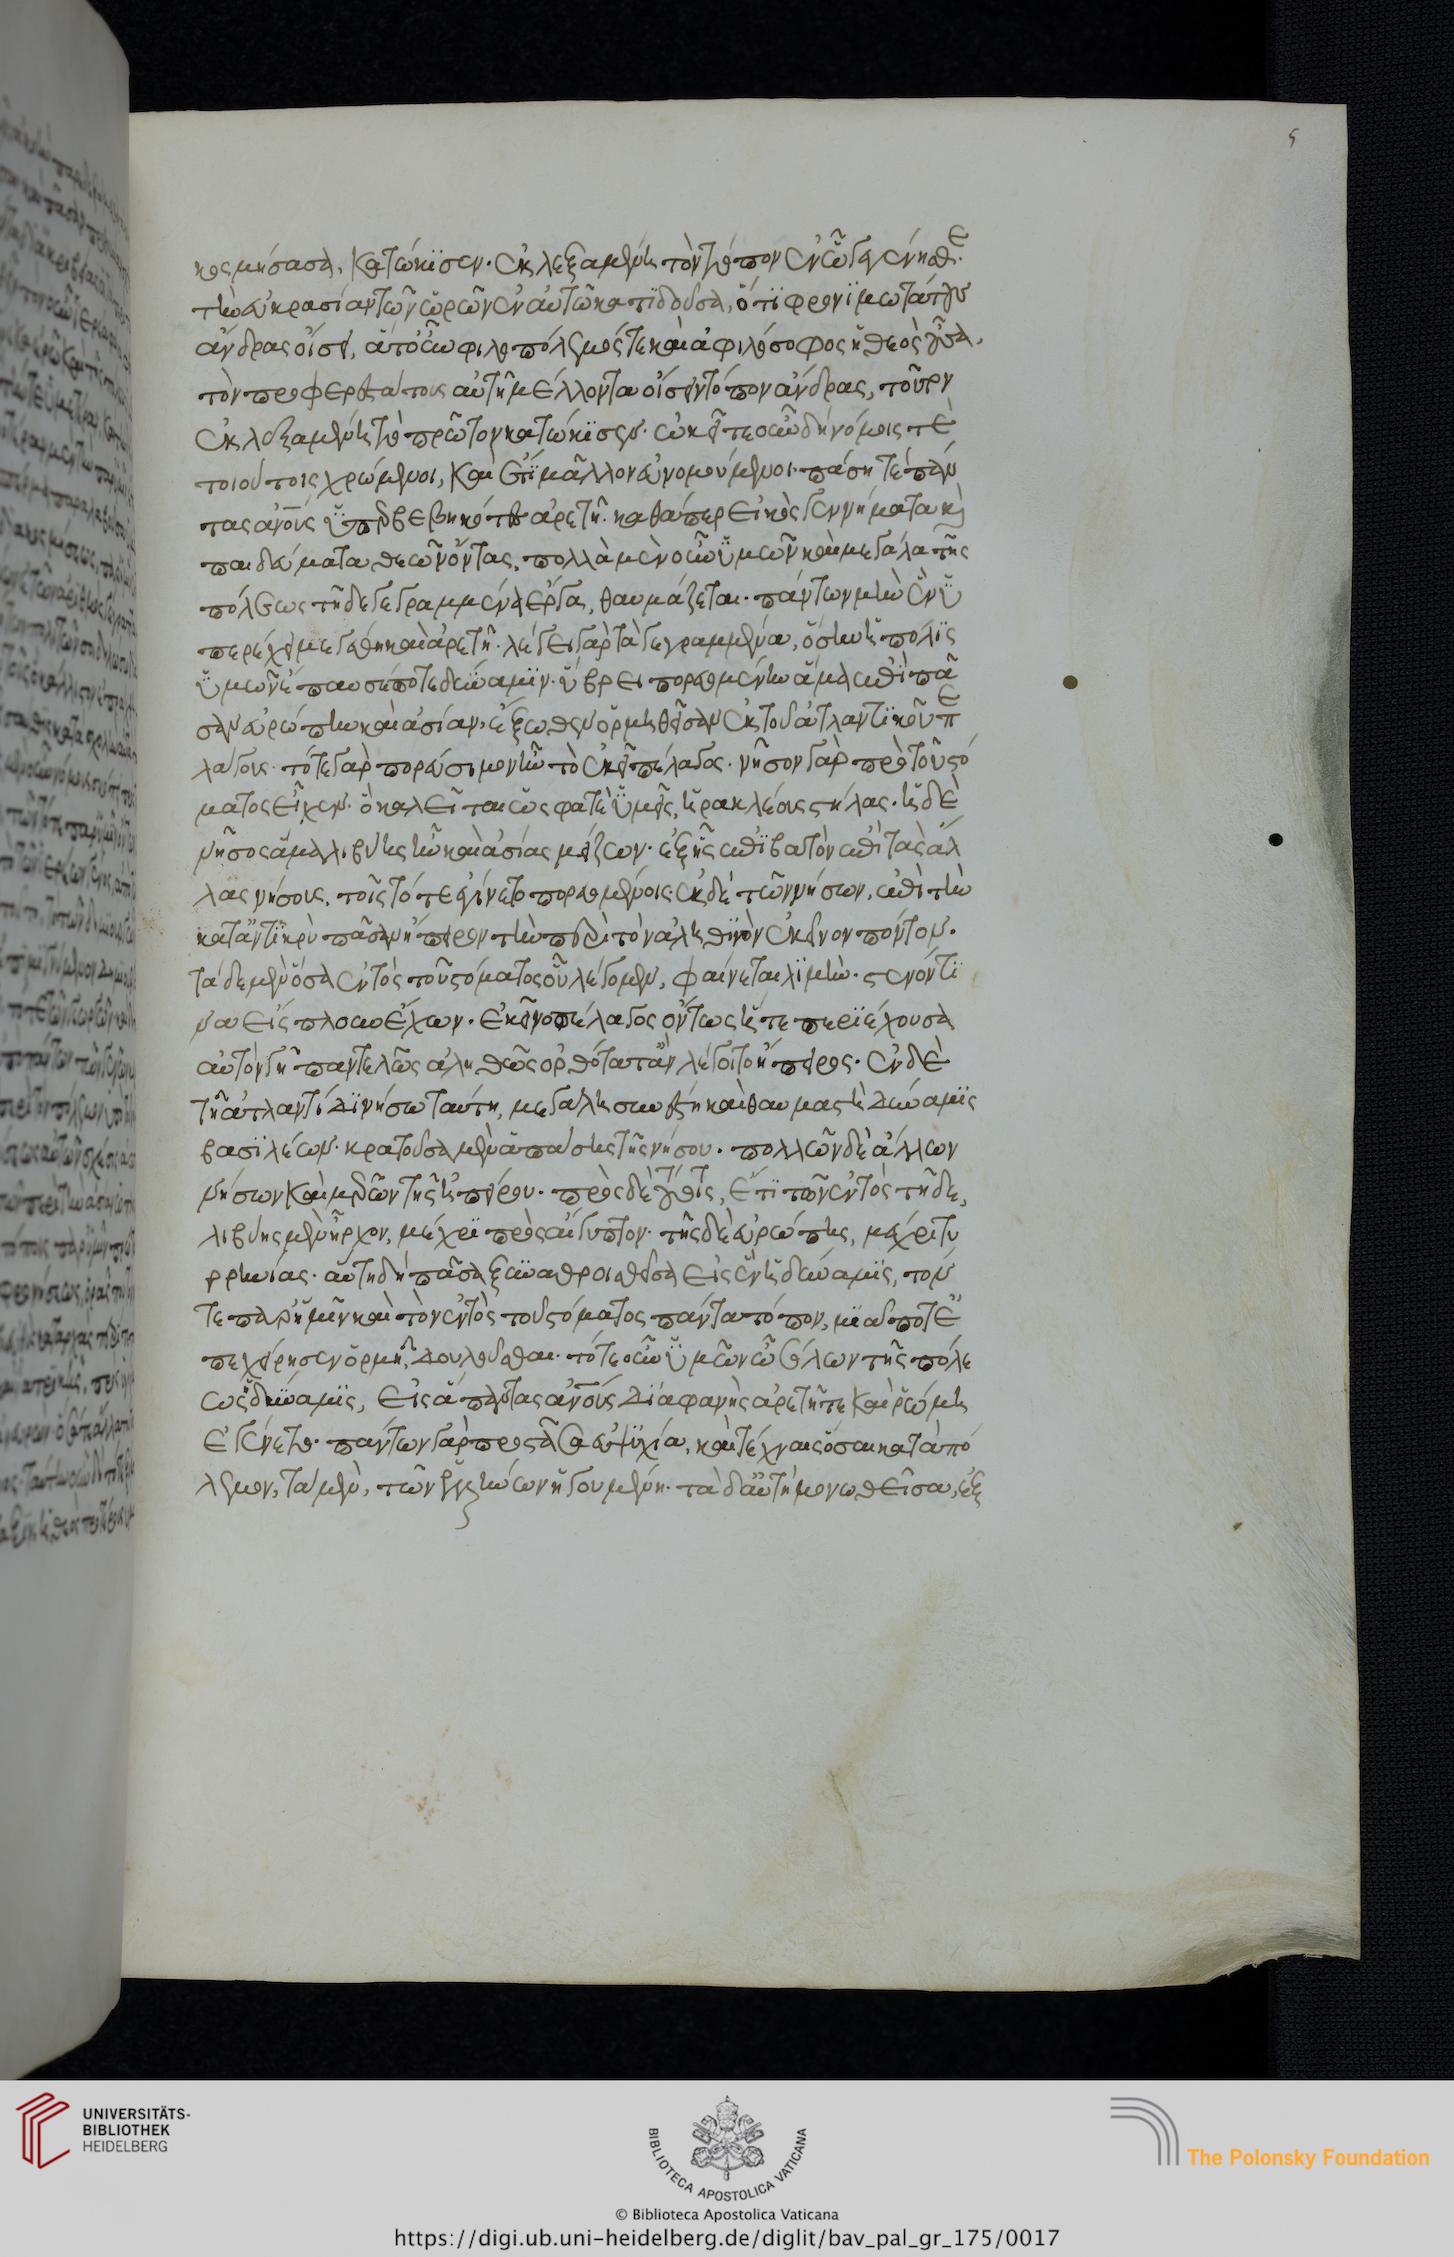 ς
κοσμήσασα, κατώκισεν· ἐκλεξαμένη τὸν τόπον ἐν ᾧ γεγένησθε·
τὴν εὐκρασίαν τῶν ὡρῶν ἐν αὐτῶ κατιδοῦσα, ὅτι φρονιμωτάτους
ἄνδρας οἴσει, ἅτ' οὖν φιλοπόλεμός τε καὶ φιλόσοφος ἡ θεὸς οὖσα,
τὸν προσφερεστάτους αὐτῆ μέλλοντα οἴσειν τόπον ἄνδρας, τοῦτον
ἐκλεξαμένη τὸ πρῶτον κατώκισεν· ὠκεῖτε οὖν δὴ νόμοις τε
τοιούτοις χρώμενοι, καὶ ἔτι μᾶλλον εὐνομούμενοι· πάση τε πάν
τας ἀνους ὑπερβεβηκότες ἀρετῆ· καθάπερ εἰκὸς γεννήματα καὶ
παιδεύματα θεῶν ὄντας, πολλὰ μὲν οὖν ὑμῶν καὶ μεγάλα τῆς
πόλεως τῆδε γεγραμμένα ἔργα, θαυμάζεται· πάντων μὴν ἓν ὑ
περέχει μεγέθει καὶ ἀρετῆ· λέγει γὰρ τὰ γεγραμμένα, ὅσην ἡ πόλις
ὑμῶν ἔπαυσέ ποτε δύναμιν· ὕβρει πορευομένην ἅμα ἐπὶ πᾶ
σαν εὐρώπην καὶ ἀσίαν, ἔξωθεν ὁρμηθεῖσαν ἐκ τοῦ ἀτλαντικοῦ πε
λάγους· τότε γὰρ πορεύσιμον ἦν τὸ ἐκεῖ πέλαγος· νῆσον γὰρ πρὸ τοῦ στό
ματος εἶχεν· ὃ καλεῖται ὥς φατε ὑμεῖς, ἡρακλέους στήλας· ἡ δὲ
νῆσος ἅμα λιβύης ἦν καὶ ἀσίας μείζων· ἐξ ἧς ἐπιβατὸν ἐπὶ τὰς ἄλ
λας νήσους, τοῖς τότε ἐγίνετο πορευομένοις· ἐκ δὲ τῶν νήσων, ἐπὶ τὴν
καταντικρὺ πᾶσαν ἤπειρον τὴν περὶ τὸν ἀληθινὸν ἐκεῖνον πόντον·
τάδε μὲν ὅσα ἐντὸς τοῦ στόματος οὗ λέγομεν, φαίνεται λιμὴν· στενόν τι
να εἴσπλουν ἔχων· ἐκεῖνο πέλαγος ὄντως ἥ τε περιέχουσα
αὐτὸν γῆ παντελῶς ἀληθῶς ὀρθότατ' ἂν λέγοιτο ἤπειρος· ἐν δὲ
τῆ ἀτλαντίδι νήσω ταύτη, μεγάλη συνέστη καὶ θαυμαστὴ δύναμις
βασιλέων· κρατοῦσα μὲν ἁπάσης τῆς νήσου· πολλῶν δὲ ἄλλων
νήσων καὶ μερῶν τῆς ἠπείρου· πρὸς δὲ τούτοις, ἔτι τῶν ἐντὸς τῆδε,
λιβύης μὲν ἦρχον, μέχρι πρὸς αἴγυπτον· τῆς δὲ εὐρώπης, μέχρι τυ
ρρηνίας· αὕτη δὴ πᾶσα ξυναθροισθεῖσα εἰς ἓν ἡ δύναμις, τόν
τε παρ' ἡμῖν καὶ τὸν ἐντὸς τοῦ στόματος πάντα τόπον, μιᾷ ποτὲ ἐ
πεχείρησεν ὁρμῆ δουλοῦσθαι· τότε οὖν ὑμῶν ὦ σόλων τῆς πόλε
ως ἡ δύναμις, εἰς ἅπαντας ἀνους διαφανὴς ἀρετῆ τε καὶ ῥώμη
ἐγένετο· πάντων γὰρ προστᾶσα εὐψυχία, καὶ τέχναις ὅσαι κατὰ πό
λεμον, τὰ μὲν, τῶν ἑλλήνων ἡγουμένη· τὰ δ' αὐτὴ μονωθεῖσα, ἐξ
UNIVERSITÄTS-
BIBLIOTHEK
HEIDELBERG
BIBLIOTECA APOSTOLICA VATICANA
The Polonsky Foundation
© Biblioteca Apostolica Vaticana
https://digi.ub.uni-heidelberg.de/diglit/bav_pal_gr_175/0017